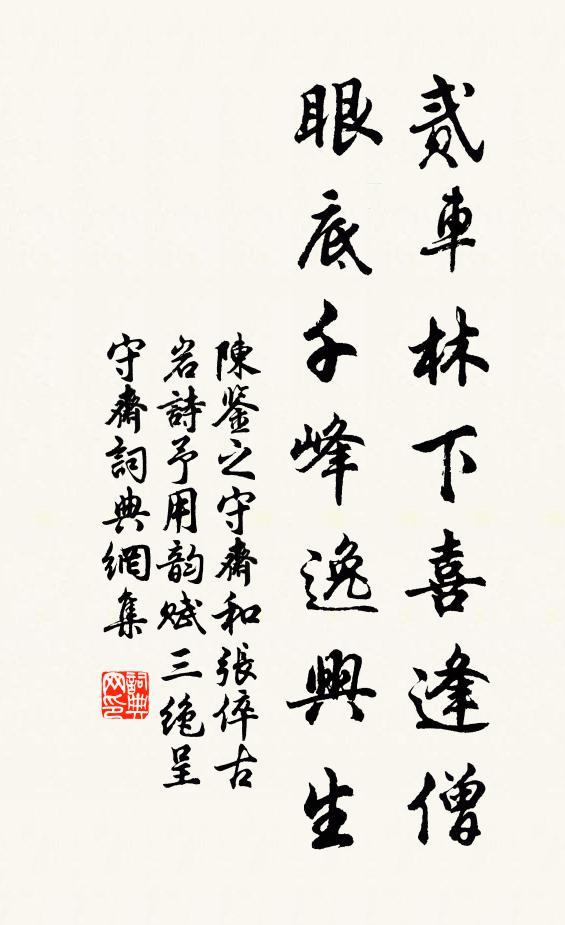 貳車林下喜逢僧
眼底千峰逸興生
陳鑒之守齋和張倅古
岩詩予用韵賦三絶呈
守齋詞典網集
詞典
网印